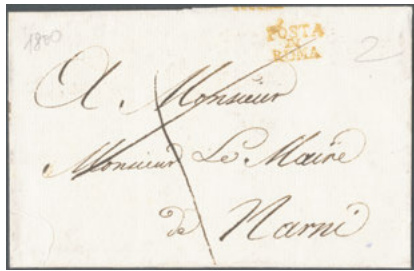 1800
POSTA
DI
ROMA
2
A Monsieur
Monsieur Le Maire
de Narni